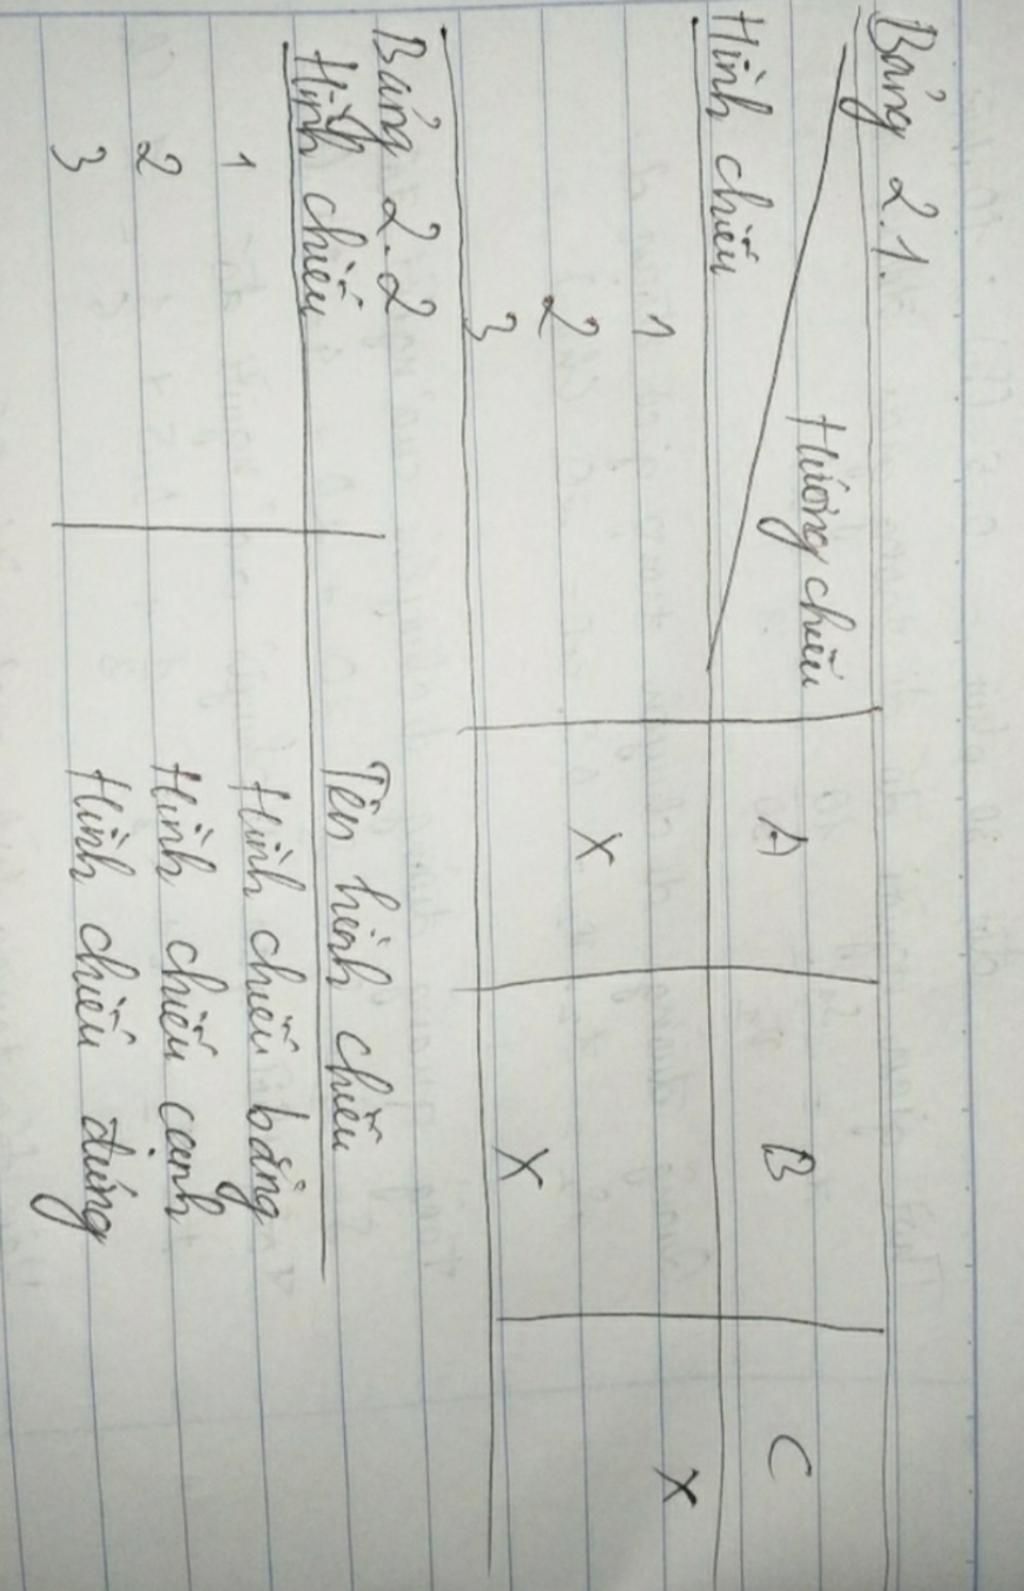 Bảng 2.1.
Hướng chiếu A B C
Hình chiếu
1 X
2 X
3 X
Bảng 2.2
Hình chiếu Tên hình chiếu
1 Hình chiếu bằng
2 Hình chiếu cạnh
3 Hình chiếu đứng